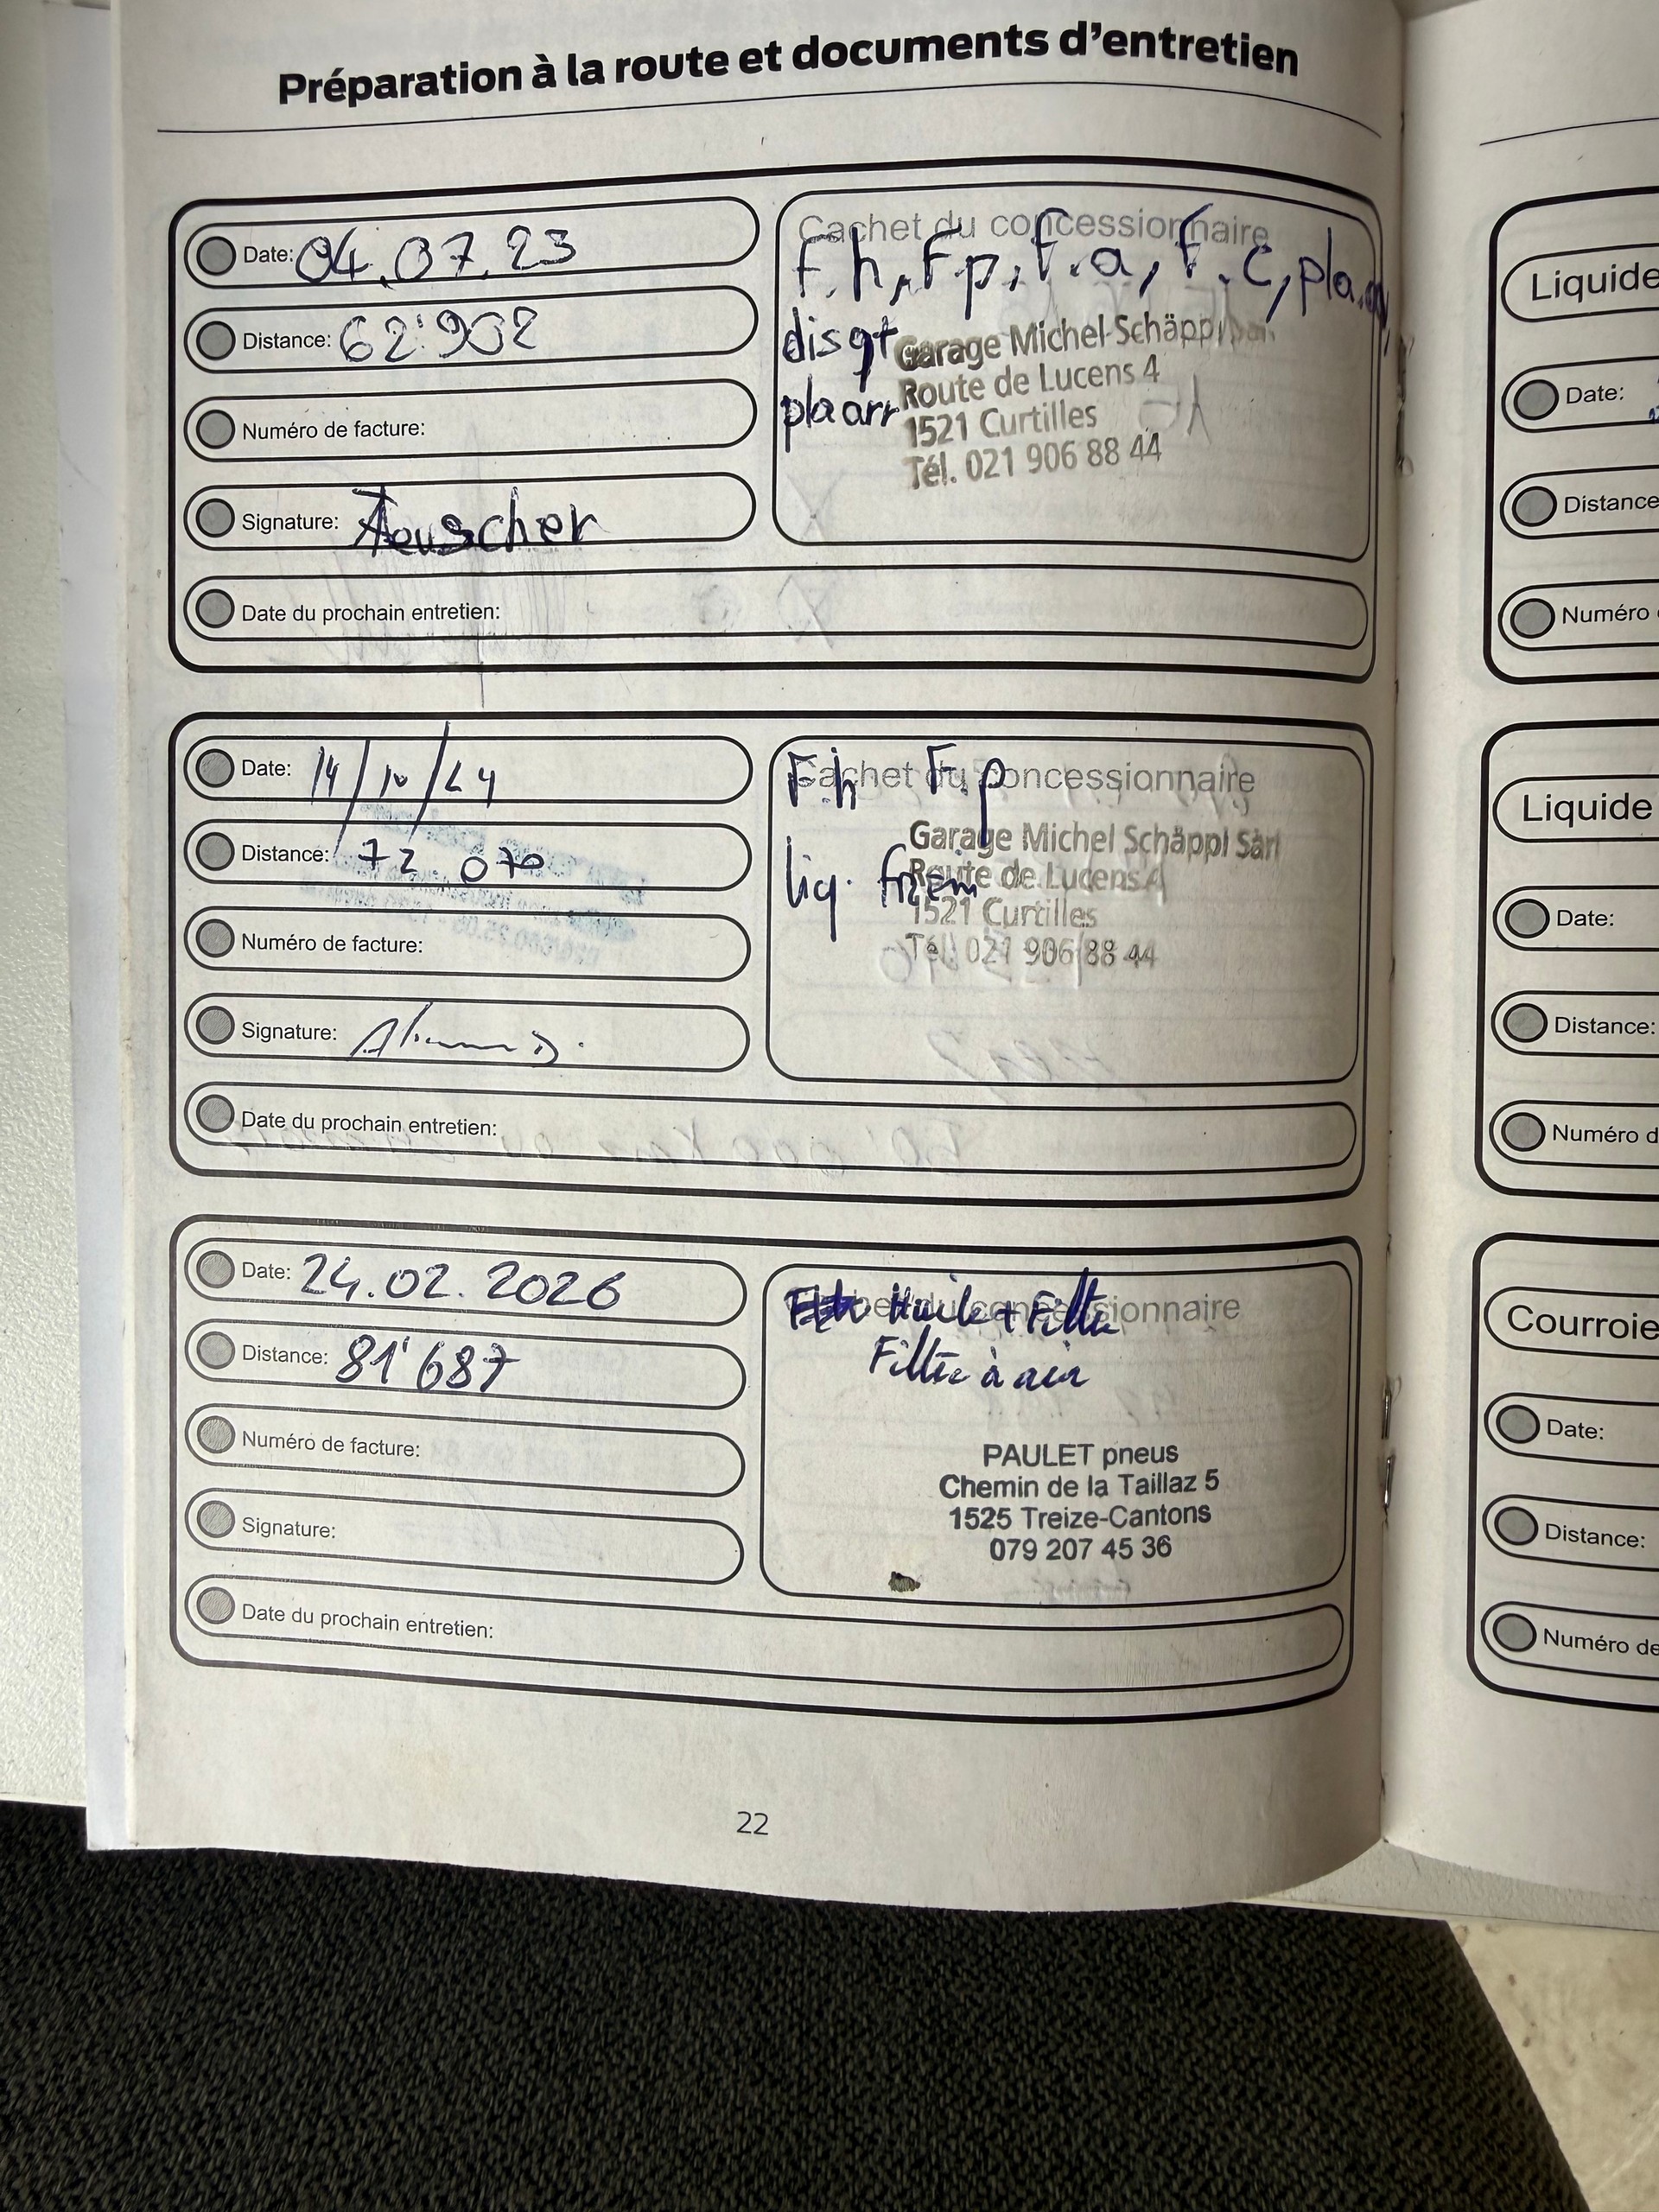 Préparation à la route et documents d'entretien
Date: 04.07.23
Distance: 62'902
Numéro de facture:
Signature: Teuscher
Date du prochain entretien:
Cachet du concessionnaire
F.h, F.p, F.a, F.c, pla.av
disqt
plaarr
Garage Michel Schäppi
Route de Lucens 4
1521 Curtilles
Tél. 021 906 88 44
Date: 14/10/24
Distance: 72.070
Numéro de facture:
Signature:
Date du prochain entretien:
Cachet du concessionnaire
F.h F.p
liq. frein
Garage Michel Schäppi Sàrl
Route de Lucens 4
1521 Curtilles
Tél. 021 906 88 44
Date: 24.02.2026
Distance: 81'687
Numéro de facture:
Signature:
Date du prochain entretien:
Cachet du concessionnaire
Huile + Filtre
Filtre à air
PAULET pneus
Chemin de la Taillaz 5
1525 Treize-Cantons
079 207 45 36
22
Liquide
Date:
Distance
Numéro
Liquide
Date:
Distance:
Numéro d
Courroie
Date:
Distance:
Numéro de